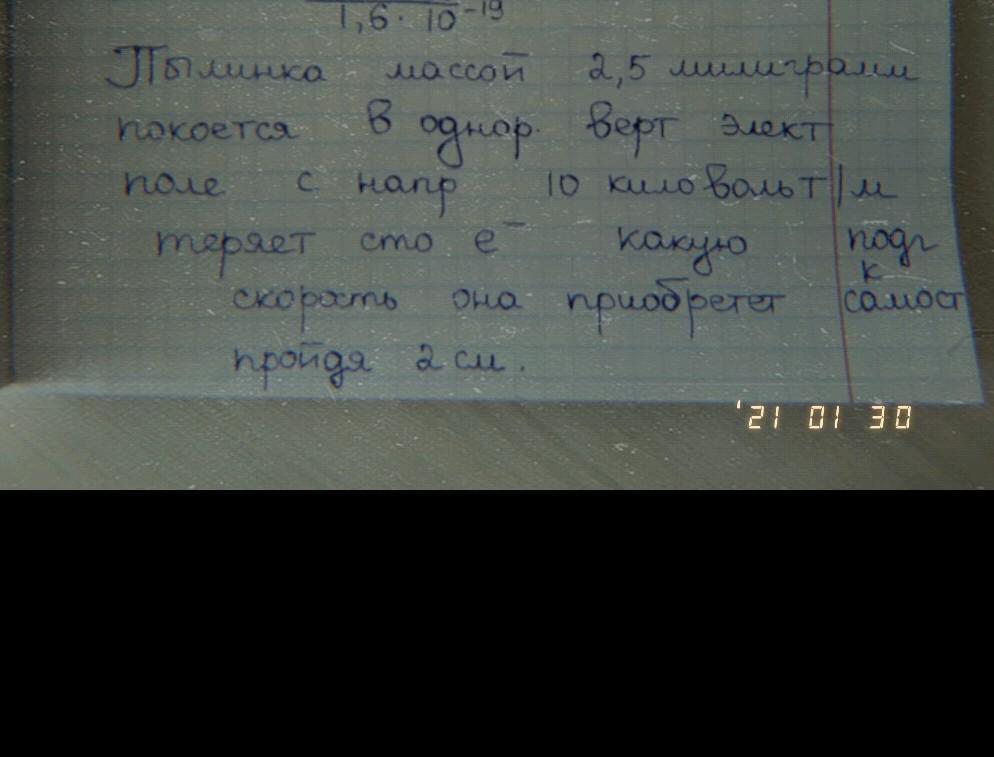 1,6 · 10⁻¹⁹
Пылинка массой 2,5 милиграмм
покоется в однор. верт элект
поле с напр 10 киловольт/м
теряет сто е⁻ какую подг
к
скорость она приобретет самост
пройдя 2 см.
'21 01 30